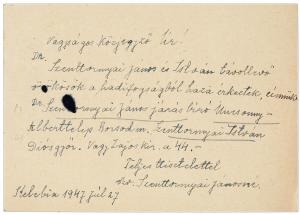 Nagyságos Közjegyző Úr!
Dr. Szenttornyai János és István távollevő
örökösök a hadifogságból haza érkeztek, címünk
Dr. Szenttornyai János járás bíró
Alberttelep Borsodm. Szenttornyai István
Diósgyőr. Vasgy. kir. a 44.-
Teljes tisztelettel
özv. Szenttornyai Jánosné.
Kelebia 1947 júl 27